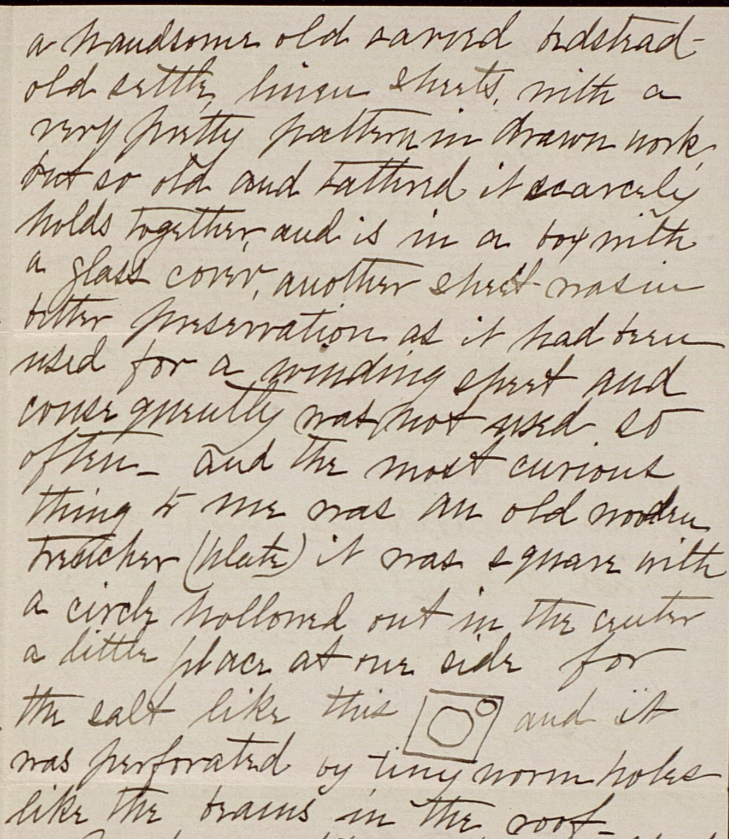 a handsome old carved bedstead-
old settle, linen sheets, with a
very pretty pattern in drawn work,
but so old and tattered it scarcely
holds together, and is in a box with
a glass cover, another sheet was in
better preservation as it had been
used for a winding sheet and
consequently was not used so
often - and the most curious
thing to me was an old wooden
trencher (plate) it was square with
a circle hollowed out in the center
a little place at one side for
the salt like this and it
was perforated by tiny worm holes
like the beams in the roof